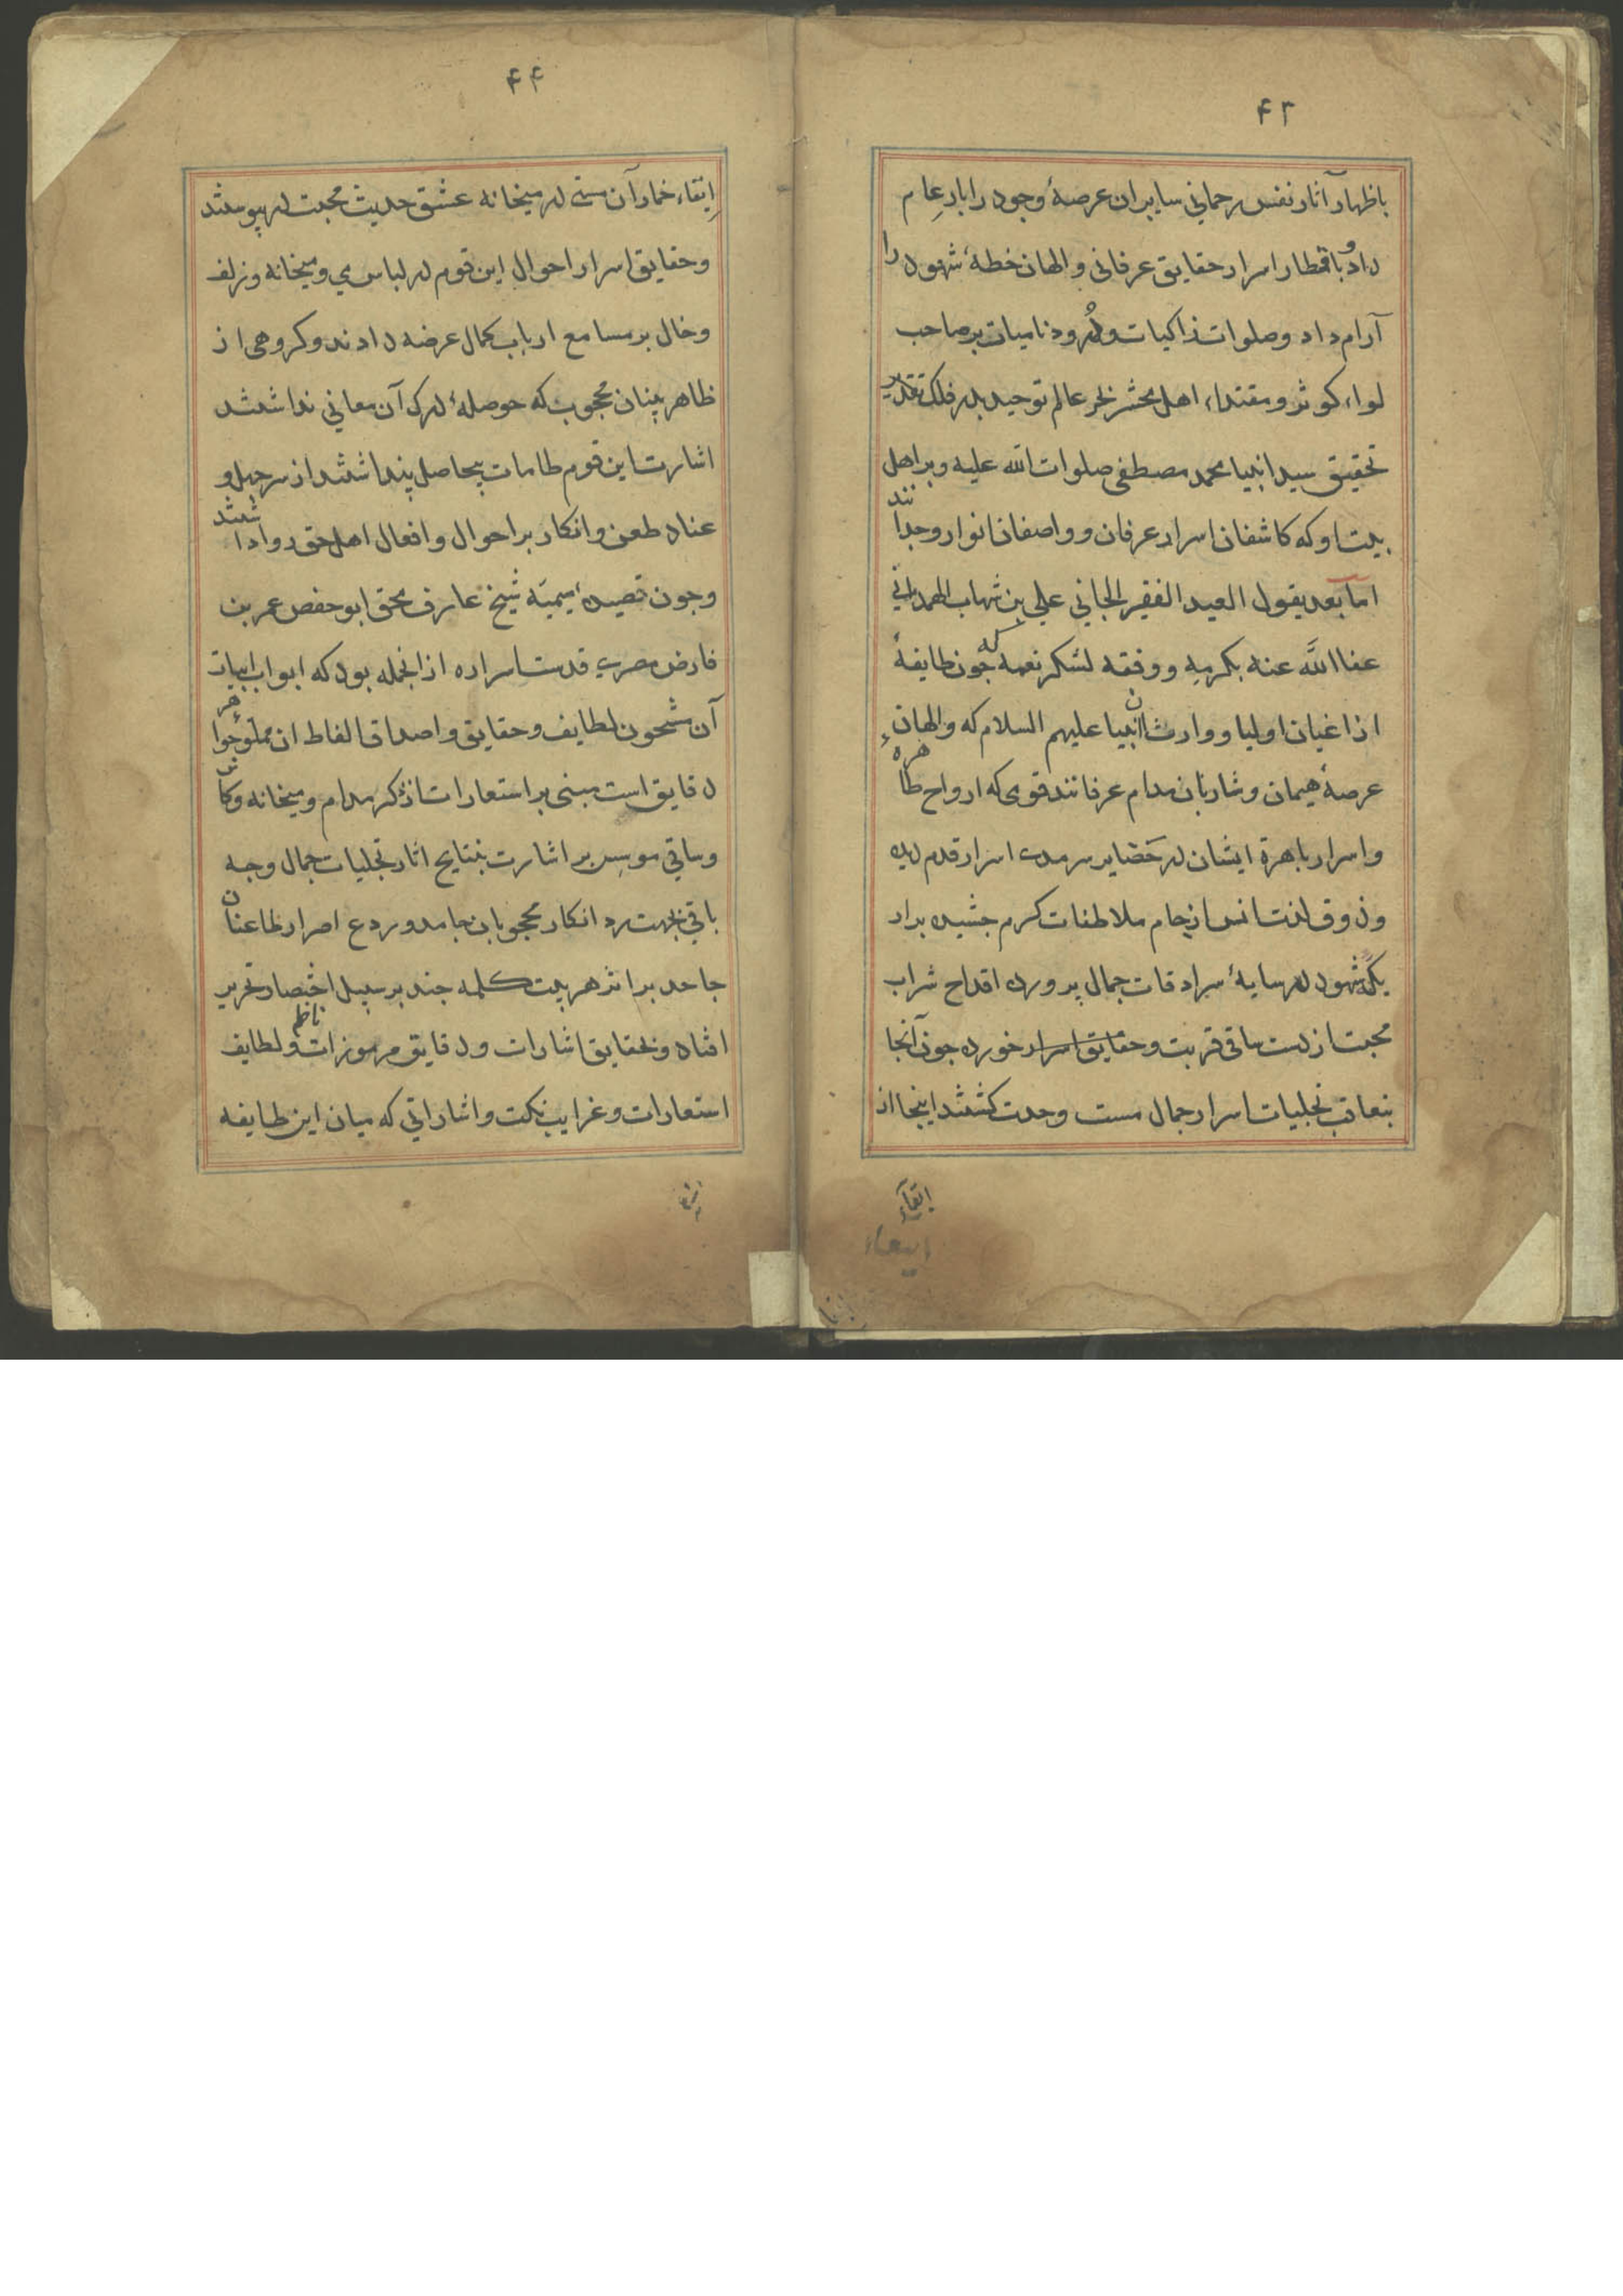 ۴۳
باظهار آثار نفس رحماني سايران عرصهٔ وجود را بار عام
داد و باقطار اسرار حقايق عرفاني والهان خطهٔ شهود را
آرام داد وصلوات زاكيات ودرود ناميات بر صاحب
لواء كوثر ومقتداء اهل محشر عالم توحيد بدر فلك تقدير
تحقيق سيد انبيا محمد مصطفى صلوات الله عليه وبر اهل
بيت او كه كاشفان اسرار عرفان وواصفان انوار وجدانند
اما بعد يقول العبد الفقير الجاني علي بن شهاب الهمداني
عفا الله عنه بكرمه ووفقه لشكر نعمه كه جون طايفهٔ
از اعيان اوليا ووارثان انبيا عليهم السلام كه والهان
عرصهٔ هيمان وشاربان مدام عرفانند قومى كه ارواح طاهره
واسرار باهرة ايشان در حضاير سرمدى اسرار قدم ديده
وذوق لذت انس از جام ملاطفات كرم جشيده براد
يكهٔ شهود در سايهٔ سرادقات جمال پرورده اقداح شراب
محبت از دست ساقى قربت وحقايق اسرار خورده جون آنجا
بتعاقب تجليات اسرار جمال مست وحدت كشتند اينجا از
ابقآء
ابقاء
۴۴
ابقاء خمار آن مستى در ميخانه عشق حديث محبت در پيوستند
وحقايق اسرار احوال اين قوم در لباس مي وميخانه وزلف
وخال بر مسامع ارباب كمال عرضه دادند وكروهى از
ظاهر بينان محجوب كه حوصلهٔ درك آن معاني نداشتند
اشارت اين قوم طامات بيحاصل پنداشتند از سر جهل و
عناد طعن وانكار بر احوال وافعال اهل حق روا داشتند
وجون قصيدهٔ ميميّه شيخ عارف محقق ابو حفص عمر بن
فارض مصرى قدست اسراره از انجمله بود كه ابواب ابيات
آن مشحون لطايف وحقايق واصداف الفاظ ان مملو جواهر
دقايق است مبنى بر استعارات از ذكر مدام وميخانه وكاس
وساقي موسس بر اشارت بنتايج اثار تجليات جمال وجه
باقي بجهت رد انكار محجوبان جامد وردع اصرار طاعنان
جاحد بر اثر هر بيت كلمه جند بر سبيل اختصار تحرير
افتاد وبحقايق اشارات ودقايق مرموزات ناظم ولطايف
استعارات وغرايب نكت واشاراتي كه ميان اين طايفه